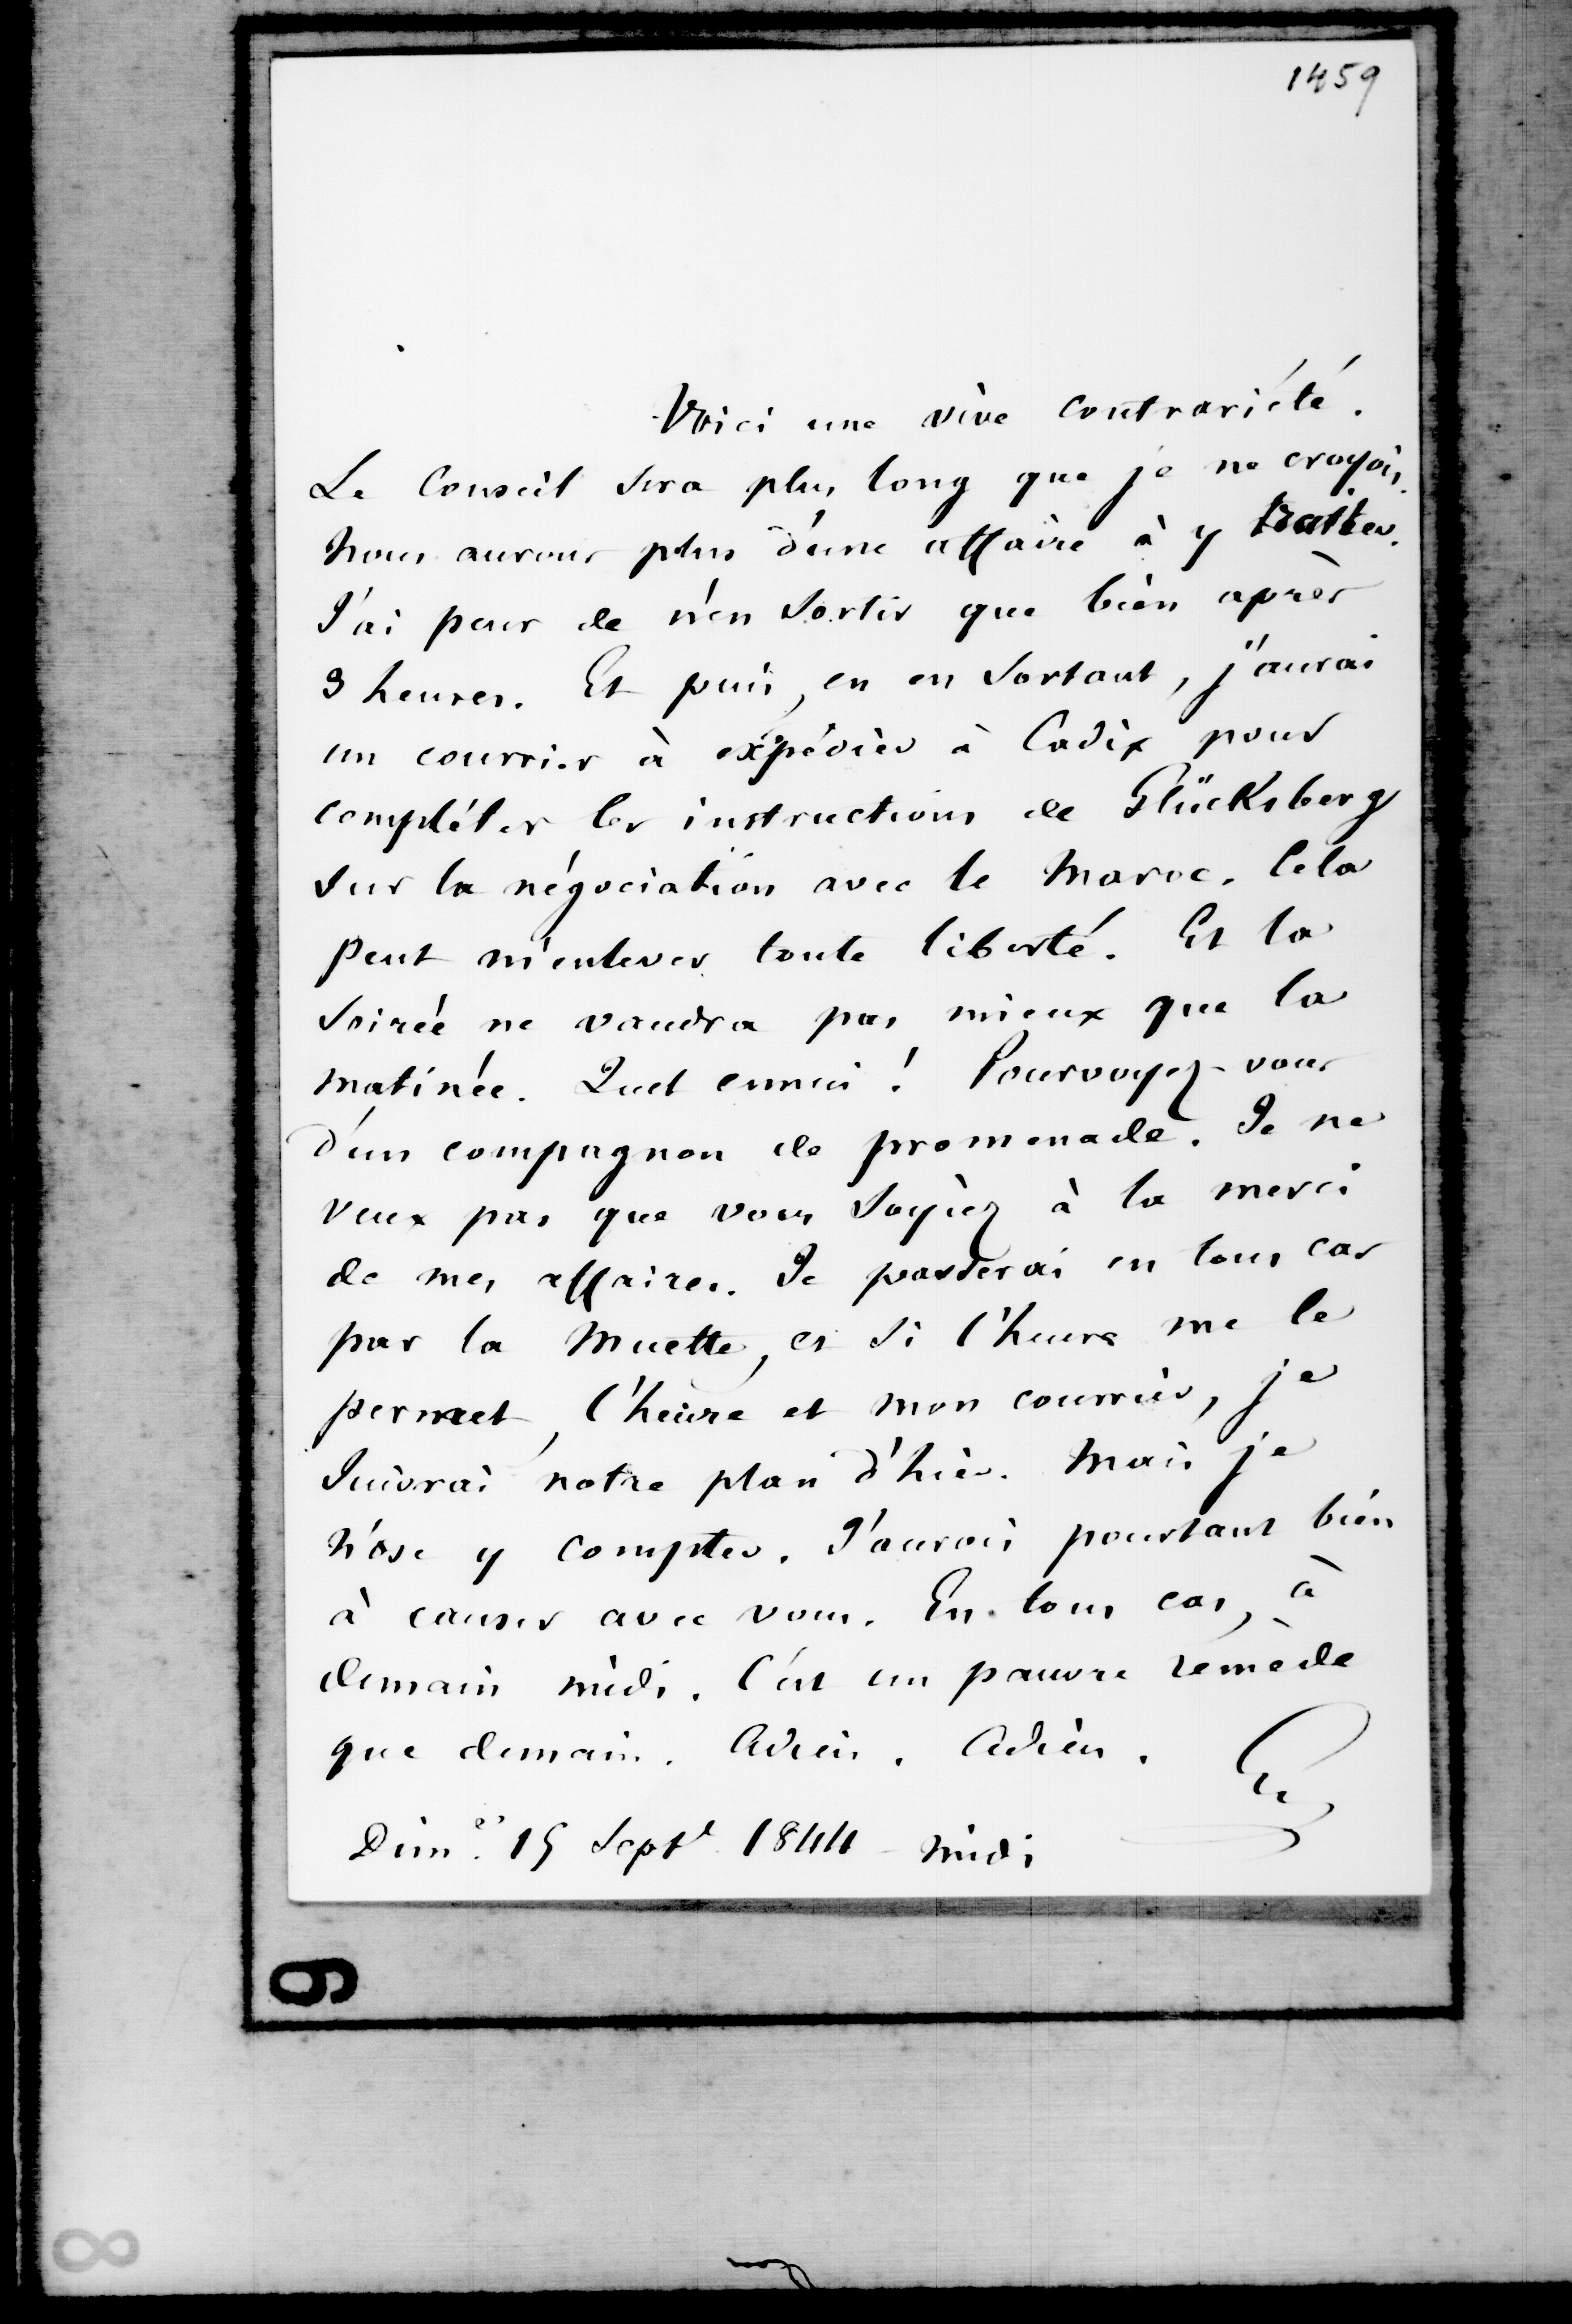 1459
Voici une vive contrariété.
Le Conseil sera plus long que je ne croyois.
Nous aurons plus d'une affaire à y traiter.
J'ai peur de n'en sortir que bien après
3 heures. Et puis, en en sortant, j'aurai
un courrier à expédier à Cadix pour
compléter les instructions de Glücksberg
sur la négociation avec le Maroc. Cela
peut m'enlever toute liberté. Et la
soirée ne vaudra pas mieux que la
matinée. Quel ennui ! Pourvoyez-vous
d'un compagnon de promenade. Je ne
veux pas que vous soyiez à la merci
de mes affaires. Je passerai en tous cas
par la Muette, et si l'heure me le
permet, l'heure et mon courrier, je
suivrai notre plan d'hier. Mais je
n'ose y compter. J'aurois pourtant bien
à causer avec vous. En tous cas, à
demain midi. C'est un pauvre remède
que demain. Adieu. Adieu. G
Dim.e 15 Sept 1844 - midi
9
8